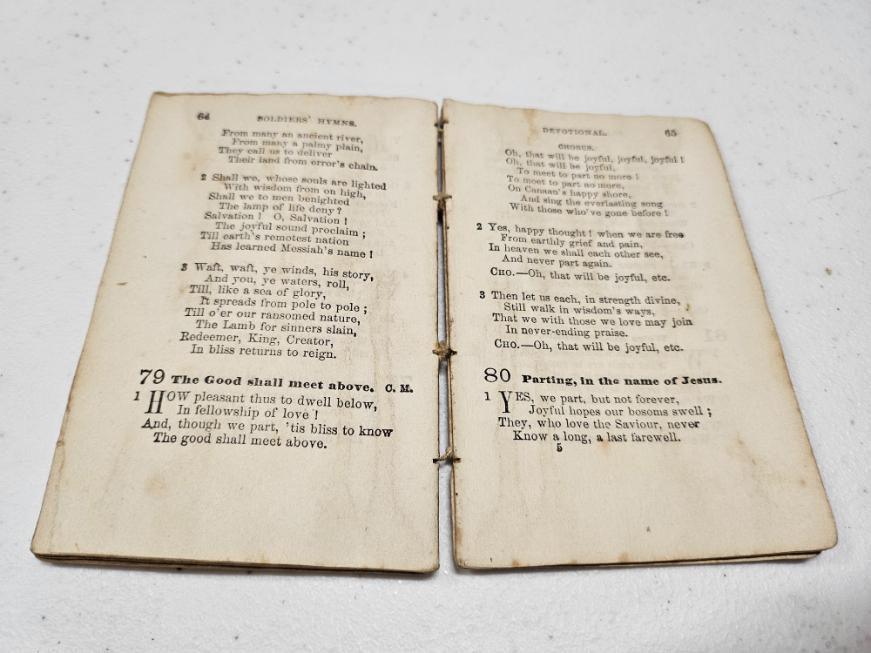 64 SOLDIERS' HYMNS.
From many an ancient river,
From many a palmy plain,
They call us to deliver
Their land from error's chain.
2 Shall we, whose souls are lighted
With wisdom from on high,
Shall we to men benighted
The lamp of life deny?
Salvation! O, Salvation!
The joyful sound proclaim;
Till earth's remotest nation
Has learned Messiah's name!
3 Waft, waft, ye winds, his story,
And you, ye waters, roll,
Till, like a sea of glory,
It spreads from pole to pole;
Till o'er our ransomed nature,
The Lamb for sinners slain,
Redeemer, King, Creator,
In bliss returns to reign.
79 The Good shall meet above. C. M.
1 HOW pleasant thus to dwell below,
In fellowship of love!
And, though we part, 'tis bliss to know
The good shall meet above.
DEVOTIONAL. 65
CHORUS.
Oh, that will be joyful, joyful, joyful!
Oh, that will be joyful,
To meet to part no more!
To meet to part no more,
On Canaan's happy shore,
And sing the everlasting song
With those who've gone before!
2 Yes, happy thought! when we are free
From earthly grief and pain,
In heaven we shall each other see,
And never part again.
CHO.—Oh, that will be joyful, etc.
3 Then let us each, in strength divine,
Still walk in wisdom's ways,
That we with those we love may join
In never-ending praise.
CHO.—Oh, that will be joyful, etc.
80 Parting, in the name of Jesus.
1 YES, we part, but not forever,
Joyful hopes our bosoms swell;
They, who love the Saviour, never
Know a long, a last farewell.
5